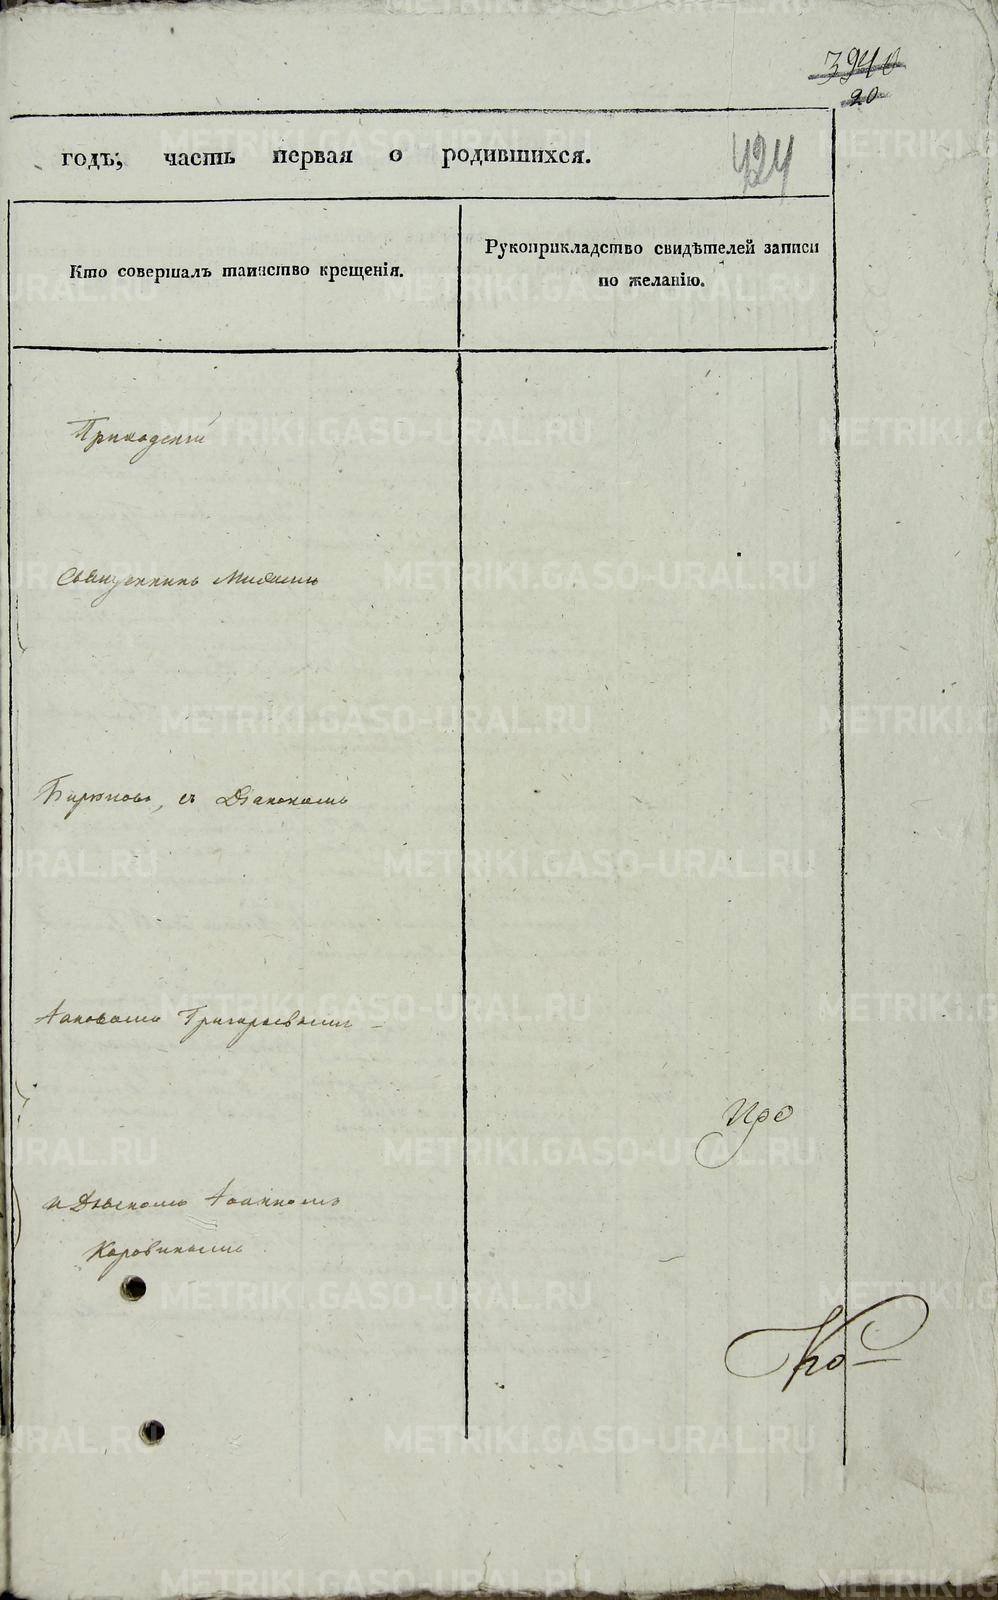 3940
20
годъ; часть первая о родившихся.
424
Кто совершалъ таинство крещенія.
Рукоприкладство свидѣтелей записи
по желанію.
Приходскій
Священникъ
Бирюковъ, съ Діакономъ
Григорьевымъ
и Дьячкомъ Іоанномъ
Коровинымъ
METRIKI.GASO-URAL.RU